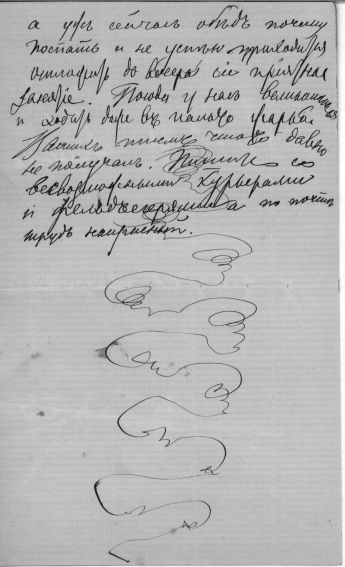 а ужъ сейчасъ обѣдъ почему
поспать и не успѣю приходится
отложить до вечера сiе прiятное
занятiе. Погода у насъ великолѣпная
и ходить даже въ пальто жарко.
Вашихъ писемъ что-то давно
не получалъ. Пишите со
всевозможными курьерами
и фельдъегерями а по почтѣ
трудъ напрасный.